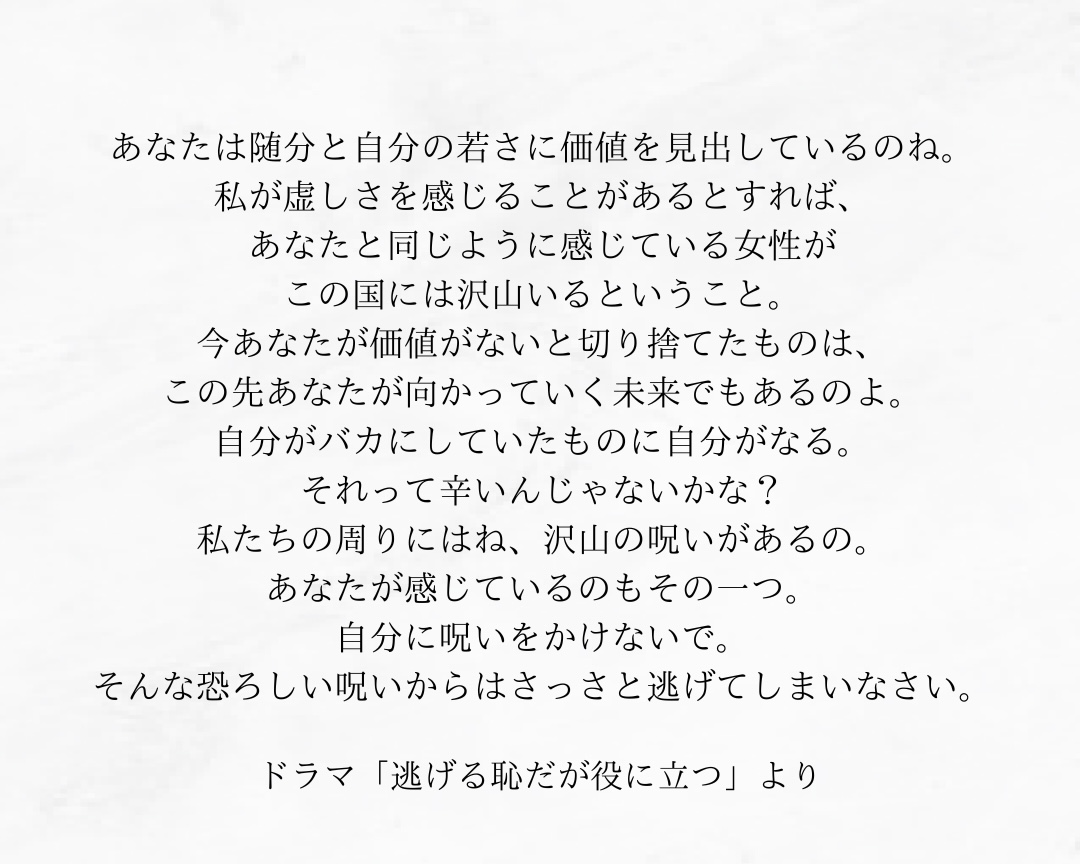 あなたは随分と自分の若さに価値を見出しているのね。
私が虚しさを感じることがあるとすれば、
あなたと同じように感じている女性が
この国には沢山いるということ。
今あなたが価値がないと切り捨てたものは、
この先あなたが向かっていく未来でもあるのよ。
自分がバカにしていたものに自分がなる。
それって辛いんじゃないかな？
私たちの周りにはね、沢山の呪いがあるの。
あなたが感じているのもその一つ。
自分に呪いをかけないで。
そんな恐ろしい呪いからはさっさと逃げてしまいなさい。
ドラマ「逃げる恥だが役に立つ」より